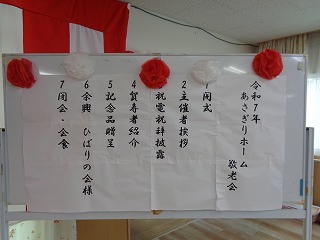 令和7年
あさぎりホーム
敬老会
1開式
2主催者挨拶
祝電祝辞披露
4賀寿者紹介
5記念品贈呈
6余興 ひばりの会様
7閉会・会食